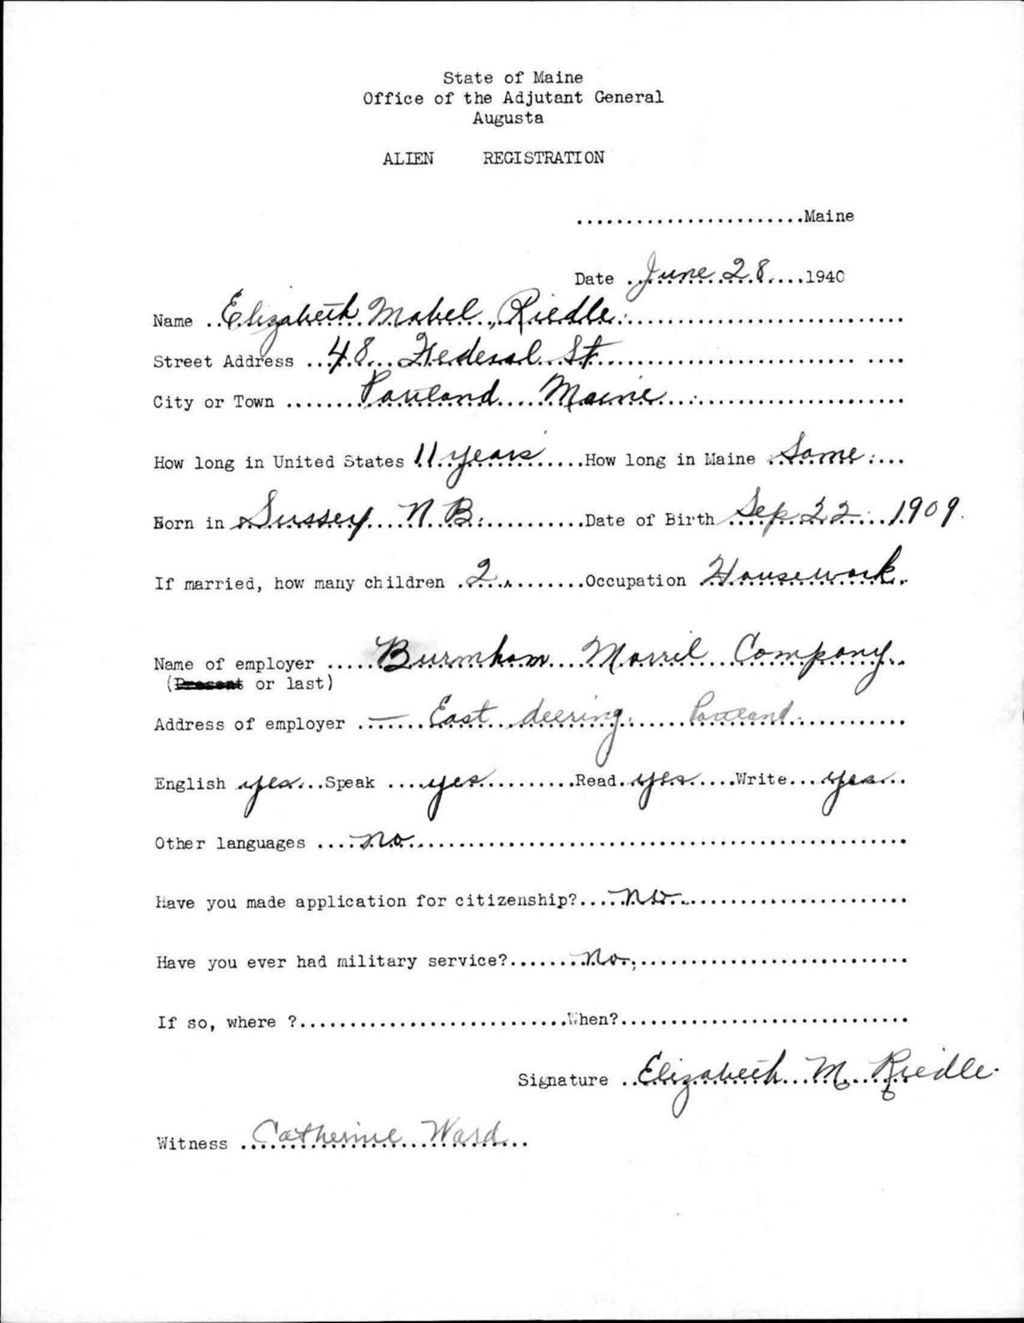 State of Maine
Office of the Adjutant General
Augusta
ALIEN REGISTRATION
.......................Maine
Date June 28....1940
Name Elizabeth Mabel Riedle
Street Address 48 Federal St
City or Town Portland Maine
How long in United States 11 years How long in Maine Same
Born in Sussex N B. Date of Birth Sep 22 1909.
If married, how many children 2 Occupation Housework
Name of employer Burnham Morril Company
(Present or last)
Address of employer — East deering. Portland.
English yes Speak yes Read yes Write yes
Other languages no
Have you made application for citizenship? No
Have you ever had military service? No.
If so, where ?..........................When?.............................
Signature Elizabeth M. Riedle.
Witness Catherine Ward